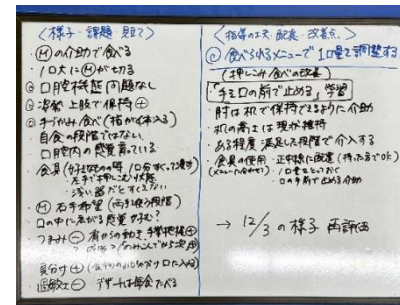 〈様子・課題・見立て〉
・Ⓜの介助で食べる
・1口大にⓂが切る
◎ 口腔機能 問題なし
・冷帯 上肢で保持 ⊕
・手づかみ食べ(指が口に入る)
・自食の段階ではない
・口腔内の感覚
・食具(好きなものの時 1口分すくって渡す)
左手で押し込む状態
・浅い皿だとすくえない
・Ⓜ 右手希望(両手使う段階)
・口の中に広がる感覚 好む?
・つまみ⊖ 肩からの動き、手掌把握⊕
・過敏⊖ デザートは毎食たべる
〈指導の工夫・配慮・改善点〉
◎ 食べられるメニューで1口量を調整する
(押しこみ食べの改善)
「手を口の前で止める」学習
・肘は机で保持できるように介助
・机の高さは現状維持
・ある程度満足した段階で介入する
・食具の使用
・1口量をとっておく
・口の手前で止める介助
→ 12/3 の様子 再評価